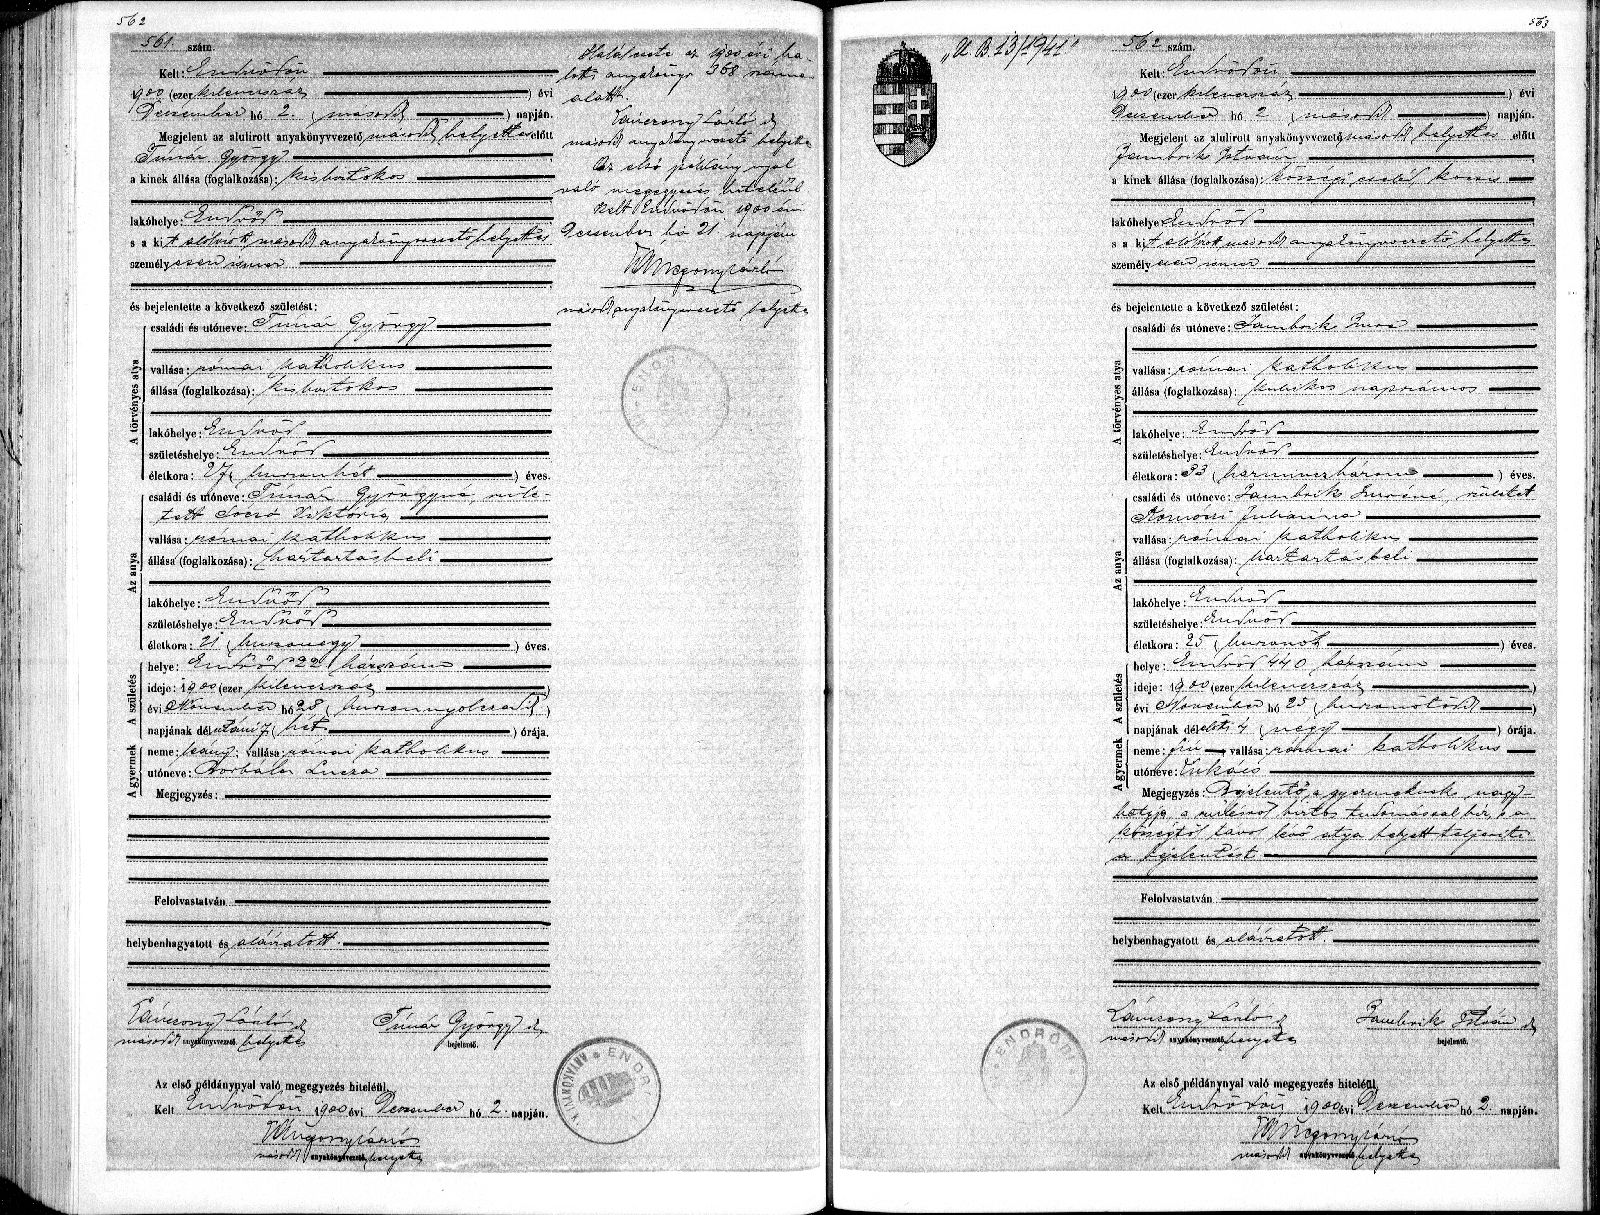 562
561. szám.
Kelt: Endrődön
900 (ezer kilencszáz) évi
Deczember hó 2. (második) napján.
Megjelent az alulirott anyakönyvvezető második helyettes előtt
Tímár György
a kinek állása (foglalkozása): kisbirtokos
lakóhelye: Endrőd
s a kit alólirott második anyakönyvvezető helyettes
személyesen ismer
és bejelentette a következő születést:
A törvényes atya
családi és utóneve: Tímár György
vallása: római katholikus
állása (foglalkozása): kisbirtokos
lakóhelye: Endrőd
születéshelye: Endrőd
életkora: 27 (huszonhét) éves.
Az anya
családi és utóneve: Tímár Györgyné, szüle-
tett Viktória
vallása: római katholikus
állása (foglalkozása): háztartásbeli
lakóhelye: Endrőd
születéshelye: Endrőd
életkora: 21 (huszonegy) éves.
A születés
helye: Endrőd 22 házszám
ideje: 1900 (ezer kilenczszáz)
évi November hó 28 (huszonnyolczadik)
napjának délutáni 7 (hét) órája.
A gyermek
neme: leány; vallása: római katholikus
utóneve: Borbála Lucza
Megjegyzés:
Felolvastatván
helybenhagyatott és aláiratott.
László
második anyakönyvvezető helyettes
Tímár György
bejelentő.
Az első példánynyal való megegyezés hiteléül,
Kelt Endrődön 1900 évi Deczember hó 2. napján.
László
második anyakönyvvezető helyettes
Halálesete az 1900 évi ha-
lotti anyakönyv 368 száma
alatt.
László
második anyakönyvvezető helyettes
Az első példány nyal
való megegyezés hiteléül
Kelt Endrődön 1900 évi
Deczember hó 21 napján
László
második anyakönyvvezető helyettes
563
"U. B. 13/1941"
562 szám.
Kelt: Endrődön
1900 (ezer kilenczszáz) évi
Deczember hó 2 (második) napján.
Megjelent az alulirott anyakönyvvezető második helyettes előtt
Zambrik István
a kinek állása (foglalkozása): községi cseléd kocsis
lakóhelye: Endrőd
s a kit alólirott második anyakönyvvezető helyettes
személyesen ismer
és bejelentette a következő születést:
A törvényes atya
családi és utóneve: Zambrik Imre
vallása: római katholikus
állása (foglalkozása): kubikos napszámos
lakóhelye: Endrőd
születéshelye: Endrőd
életkora: 33 (harminczhárom) éves.
Az anya
családi és utóneve: Zambrik Imréné, született
Julianna
vallása: római katholikus
állása (foglalkozása): háztartásbeli
lakóhelye: Endrőd
születéshelye: Endrőd
életkora: 25 (huszonöt) éves.
A születés
helye: Endrőd 440 házszám
ideje: 1900 (ezer kilenczszáz)
évi November hó 25 (huszonötödik)
napjának délelőtti 4 (négy) órája.
A gyermek
neme: fiu vallása: római katholikus
utóneve: Lukács
Megjegyzés: Bejelentő, a gyermeknek nagy-
batyja a szülésről biztos tudomással bír, s a
községtől távol lévő atya helyett teljesíti
a bejelentést.
Felolvastatván
helybenhagyatott és aláiratott.
László
második anyakönyvvezető helyettes
Zambrik István
bejelentő.
ENDRŐD
Az első példánynyal való megegyezés hiteléül,
Kelt Endrődön 1900 évi Deczember hó 2. napján.
László
második anyakönyvvezető helyettes